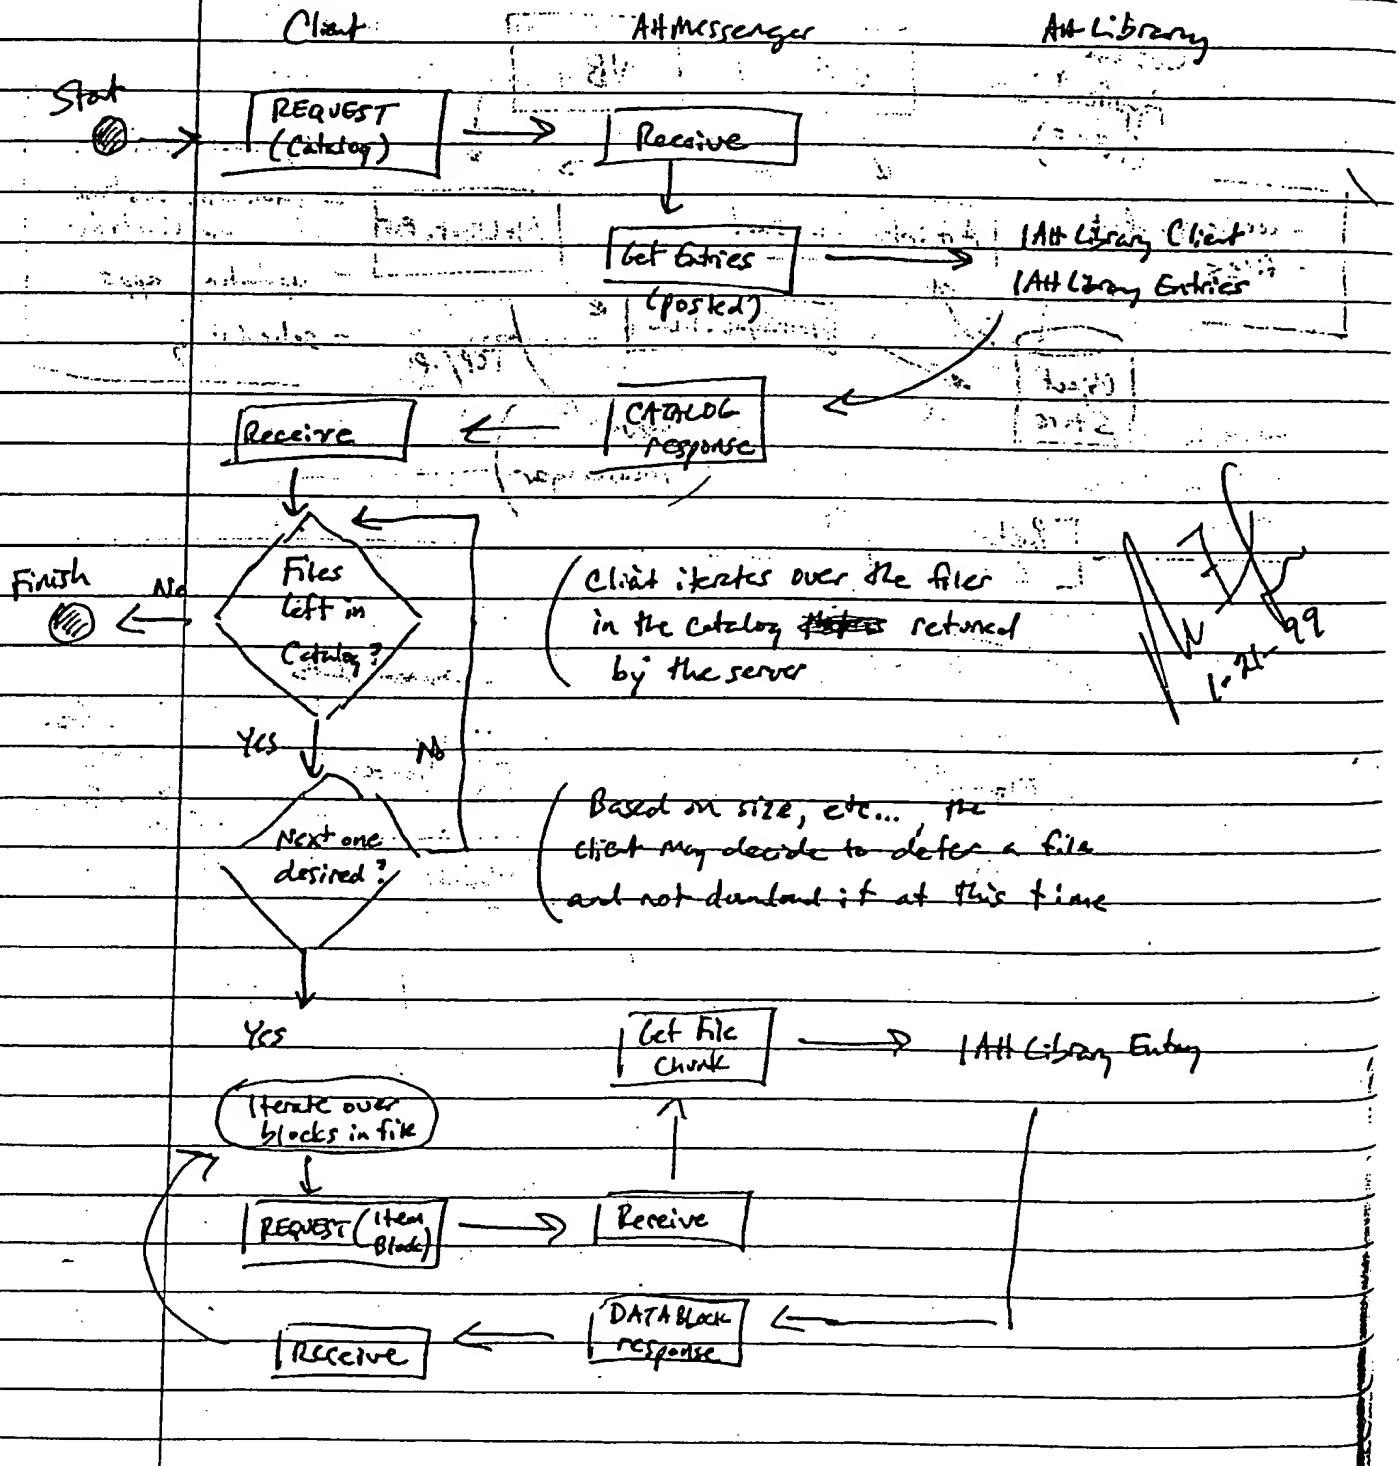 Client AHMessenger AH Library
Start
REQUEST
(Catalog)
Receive
Get Entries
(posted)
IAH Library Client
IAH Library Entries
CATALOG
response
Receive
Files
left in
Catalog?
No
Finish
Client iterates over the files
in the catalog returned
by the server
1-21-99
Yes
No
Next one
desired?
Based on size, etc..., the
client may decide to defer a file
and not download it at this time
Yes
Get File
Chunk
IAH Library Entry
Iterate over
blocks in file
REQUEST (Item
Block)
Receive
DATABLOCK
response
Receive